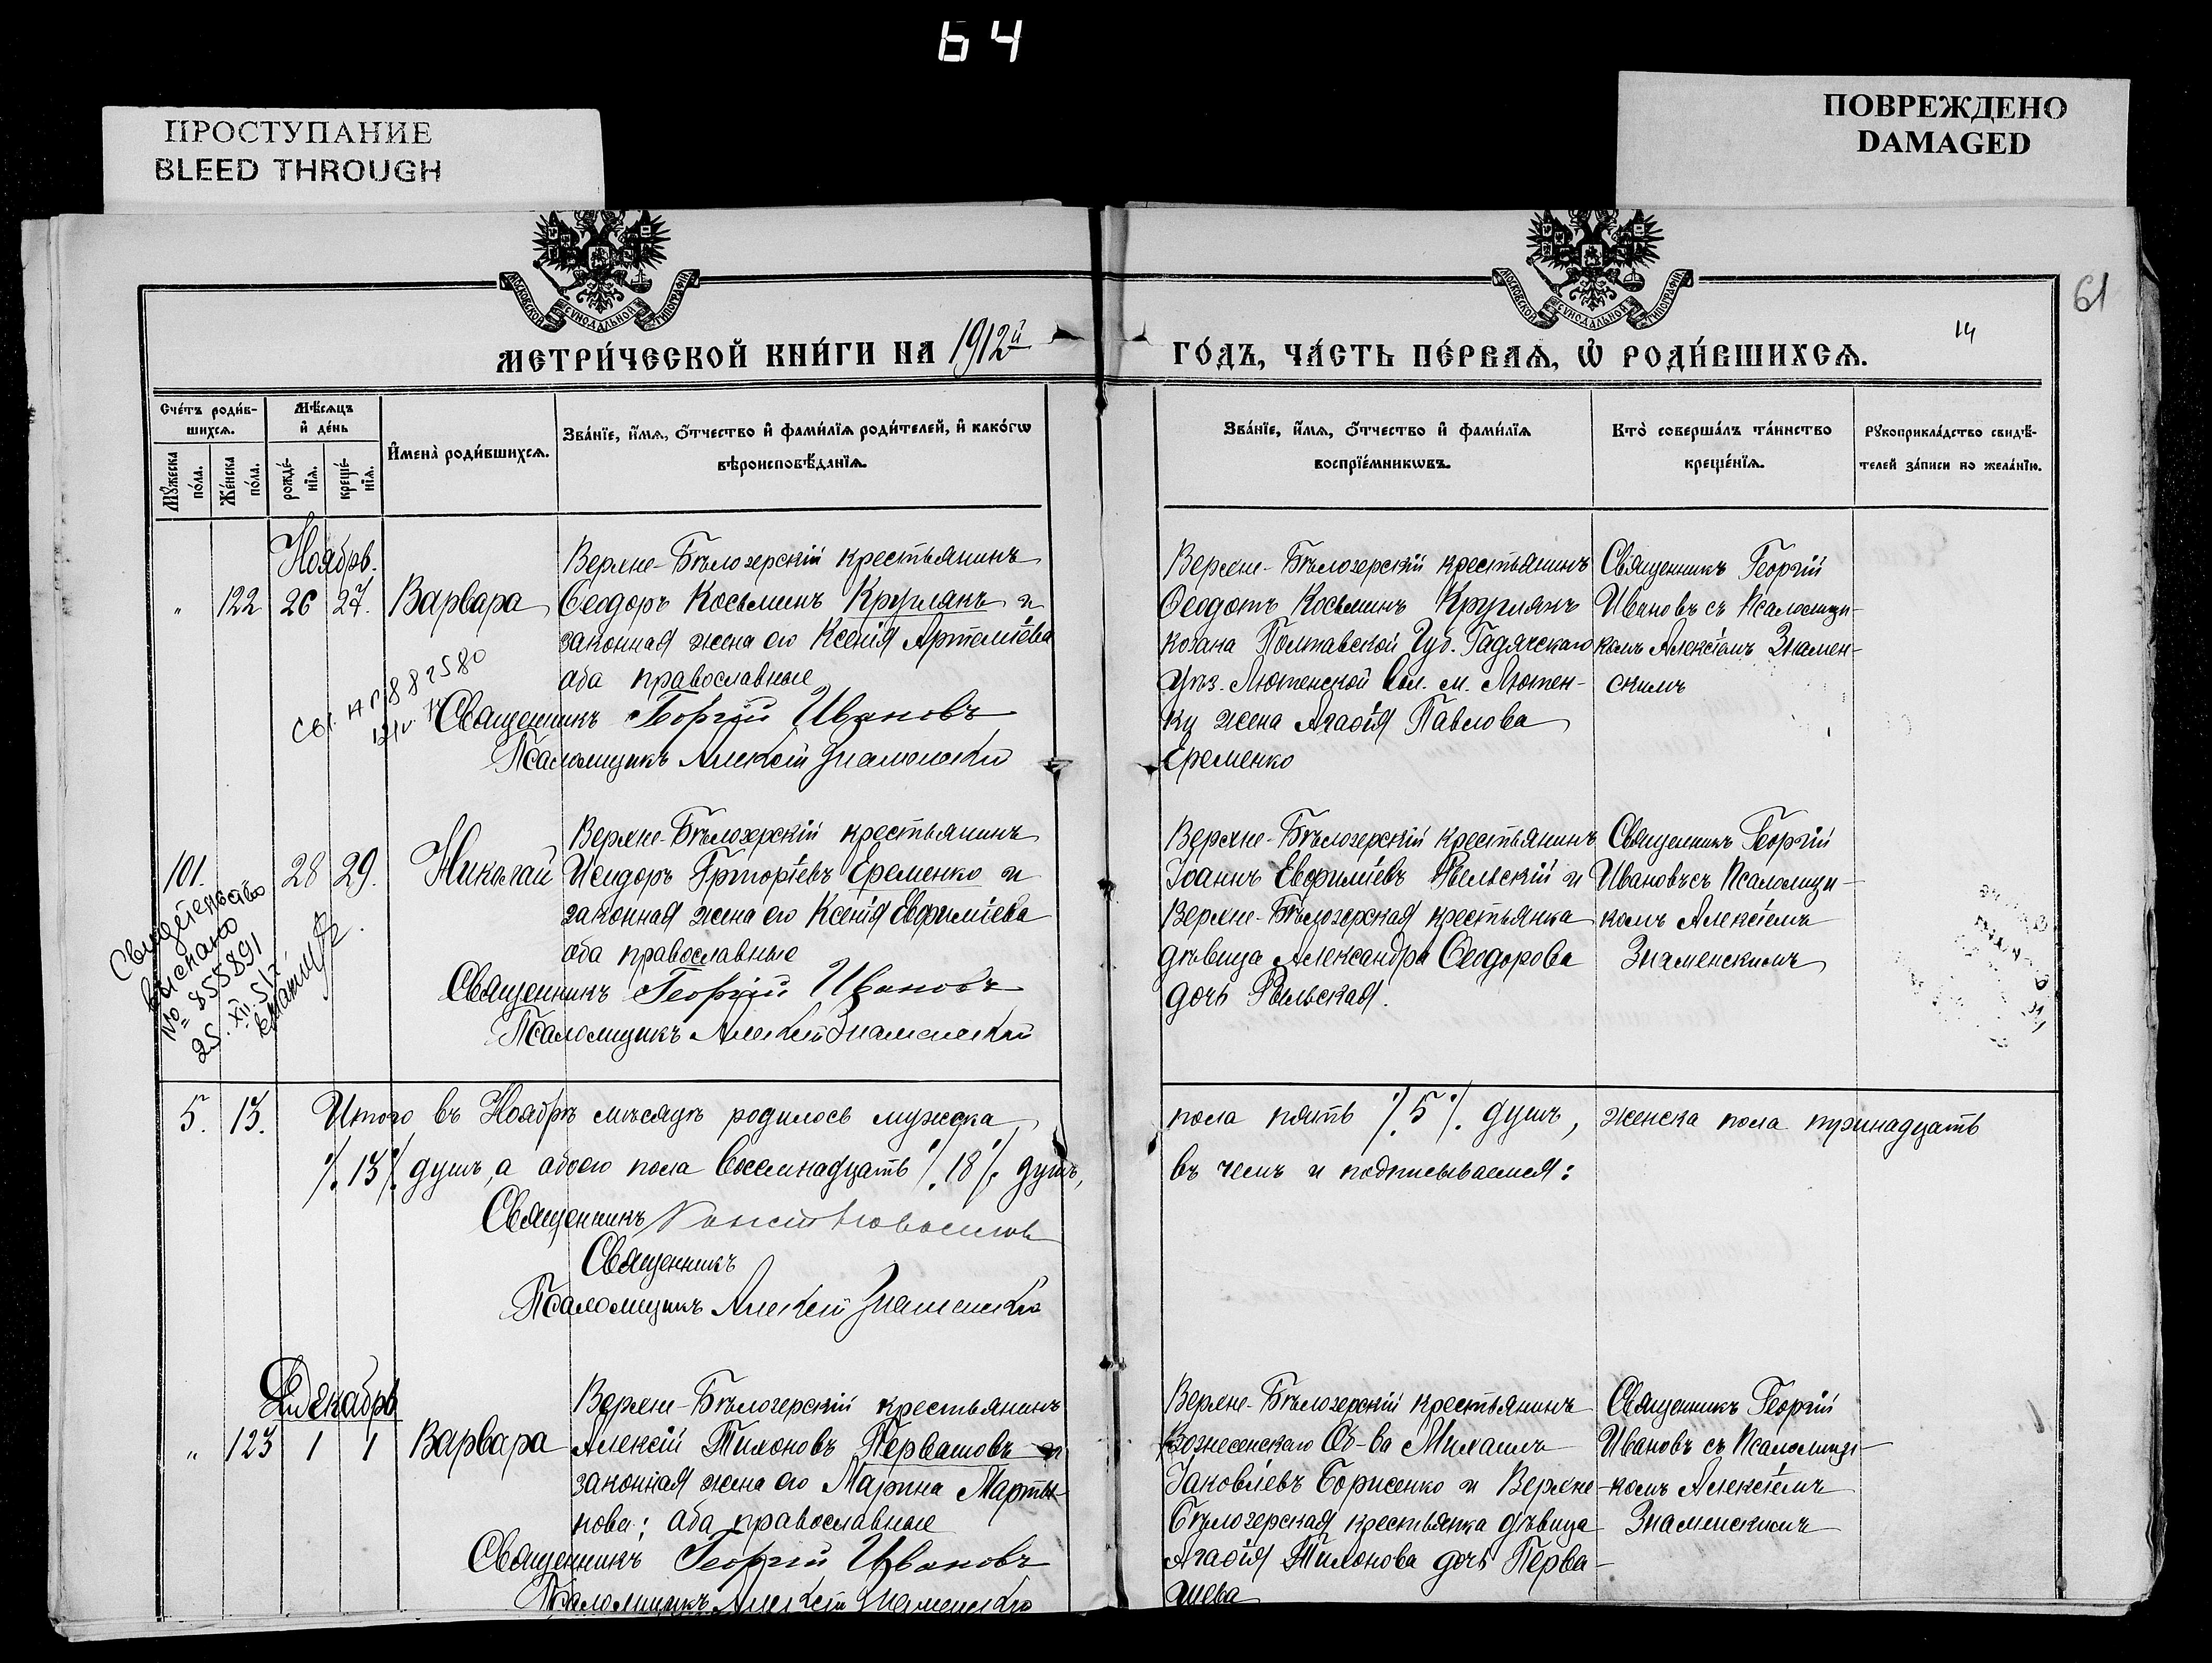 64
ПРОСТУПАНИЕ
BLEED THROUGH
ПОВРЕЖДЕНО
DAMAGED
61
14
МОСКОВСКОЙ СѴНОДАЛЬНОЙ ТИПОГРАФІИ
МОСКОВСКОЙ СѴНОДАЛЬНОЙ ТИПОГРАФІИ
МЕТРИ́ЧЕСКОЙ КНИ́ГИ НА 1912й
ГО́ДЪ, ЧА́СТЬ ПЕ́РВАѦ, Ѡ҆ РОДИ́ВШИХСѦ.
Сче́тъ роди́в-
шихсѧ.
Мѣ́сѧцъ
и҆ де́нь
Мꙋ́жеска
по́ла.
Же́нска
по́ла.
рожде́-
нїѧ.
креще́-
нїѧ.
И҆мена̀ роди́вшихсѧ.
Зва́нїе, и҆́мѧ, ѻ҆́тчество и҆ фами́лїѧ роди́телей, и҆ како́гѡ
вѣроисповѣ́данїѧ.
Зва́нїе, и҆́мѧ, ѻ҆́тчество и҆ фами́лїѧ
воспрїе́мникѡвъ.
Кто̀ соверша́лъ та́инство
креще́нїѧ.
Рꙋкоприкла́дство свидѣ́-
телей за́писи по жела́нїю.
Ноябрь.
„ 122 26 27. Варвара
Верхне-Бѣлозерскій крестьянинъ
Ѳеодоръ Косьминъ Круглякъ и
законная жена его Ксенія Артеміева
оба православные
Священникъ Георгій Ивановъ
Псаломщикъ Алексій Знаменскій
882580
Верхне-Бѣлозерскій крестьянинъ
Ѳеодотъ Косьминъ Круглякъ
козака Полтавской Губ. Гадячскаго
Уѣз. Лютенской Вол. м. Лютен-
ки жена Агаѳія Павлова
Еременко
Священникъ Георгій
Ивановъ съ Псаломщи-
комъ Алексіемъ Знамен-
скимъ
101. 28 29. Николай
Верхне-Бѣлозерскій крестьянинъ
Исидоръ Григоріевъ Еременко и
законная жена его Ксенія Евфиміева
оба православные
Священникъ Георгій Ивановъ
Псаломщикъ Алексій Знаменскій
Свидетельство
выслано
№ 855891
25.XII.51г.
Верхне-Бѣлозерскій крестьянинъ
Іоаннъ Евфиміевъ Рыльскій и
Верхне-Бѣлозерская крестьянка
дѣвица Александра Ѳеодорова
дочь Рыльская.
Священникъ Георгій
Ивановъ съ Псаломщи-
комъ Алексіемъ
Знаменскимъ
5. 13. Итого въ Ноябрѣ мѣсяцѣ родилось мужска
пола пять ./.5./. душъ, женска пола тринадцать
./.13./. душъ, а обоего пола восемнадцать ./.18./. душъ,
въ чемъ и подписываемся:
Священникъ
Священникъ
Псаломщикъ Алексій Знаменскій
Декабрь
„ 123 1 1 Варвара
Верхне-Бѣлозерскій крестьянинъ
Алексій Тихоновъ Первашовъ и
законная жена его Марина Марты-
нова; оба православные
Священникъ Георгій Ивановъ
Псаломщикъ Алексій Знаменскій
Верхне-Бѣлозерскій крестьянинъ
Вознесенскаго Об-ва Михаилъ
Іаковлевъ Борисенко и Верхне-
Бѣлозерская крестьянка дѣвица
Агаѳія Тихонова дочь Перва-
шева
Священникъ Георгій
Ивановъ съ Псаломщи-
комъ Алексіемъ
Знаменскимъ